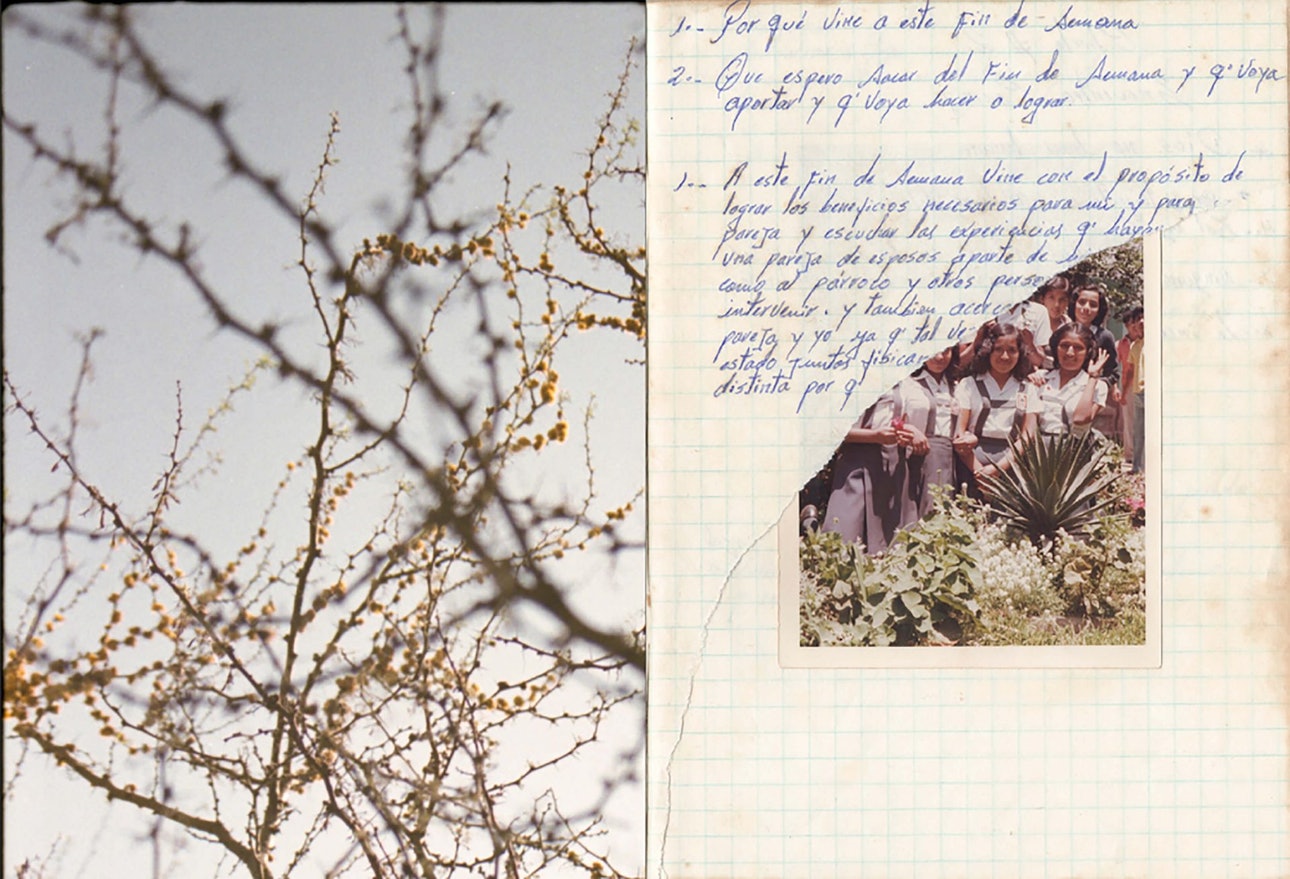 1.- Por qué vine a este fin de Semana
2.- Que espero sacar del Fin de Semana y q' voy a
aportar y q' voy a hacer o lograr.
1.- A este fin de Semana vine con el propósito de
lograr los beneficios necesarios para mi y para
pareja y escuchar las experiencias q' hayan
una pareja de esposos aparte de
como al párroco y otros perso
intervenir. y tambien acerca
pareja y yo ya q' tal ve
estado juntos
distinta por q'